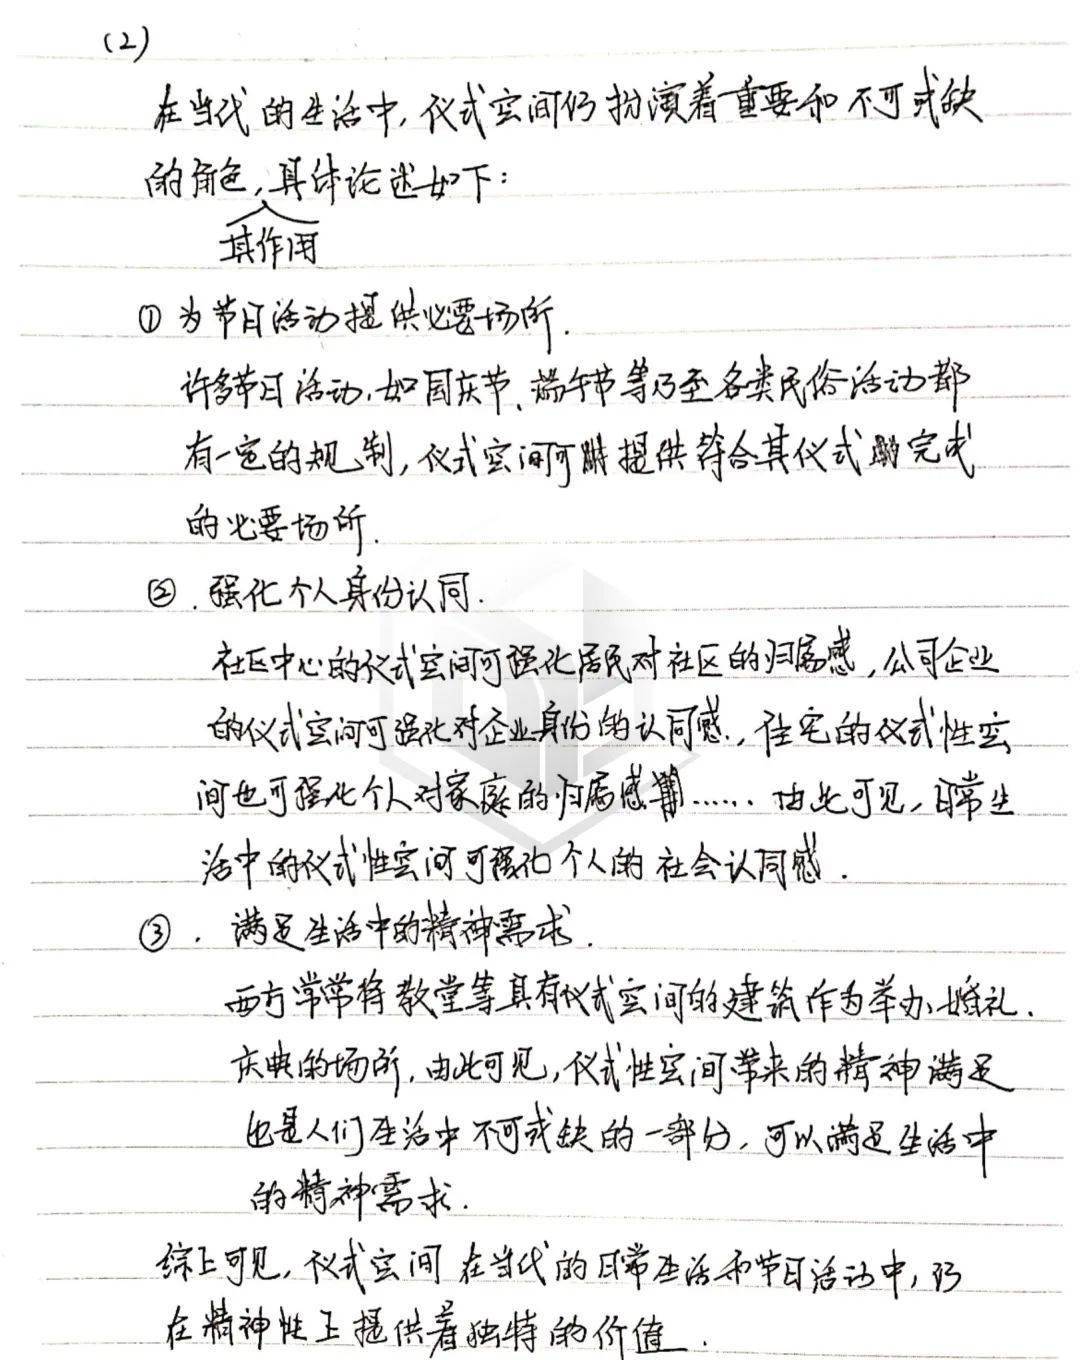 (2)
在当代的生活中,仪式空间仍扮演着重要和不可或缺
的角色,具体论述如下:
其作用
① 为节日活动提供必要场所.
许多节日活动,如国庆节、端午节等乃至各类民俗活动都
有一定的规制,仪式空间可提供符合其仪式完成
的必要场所.
②. 强化个人身份认同.
社区中心的仪式空间可强化居民对社区的归属感,公司企业
的仪式空间可强化对企业身份的认同感.,住宅的仪式性空
间也可强化个人对家庭的归属感……. 由此可见,日常生
活中的仪式性空间可强化个人的社会认同感.
③. 满足生活中的精神需求.
西方常常将教堂等具有仪式空间的建筑作为举办婚礼.
庆典的场所,由此可见,仪式性空间带来的精神满足
也是人们生活中不可或缺的一部分,可以满足生活中
的精神需求.
综上可见,仪式空间在当代的日常生活和节日活动中,仍
在精神性上提供着独特的价值.